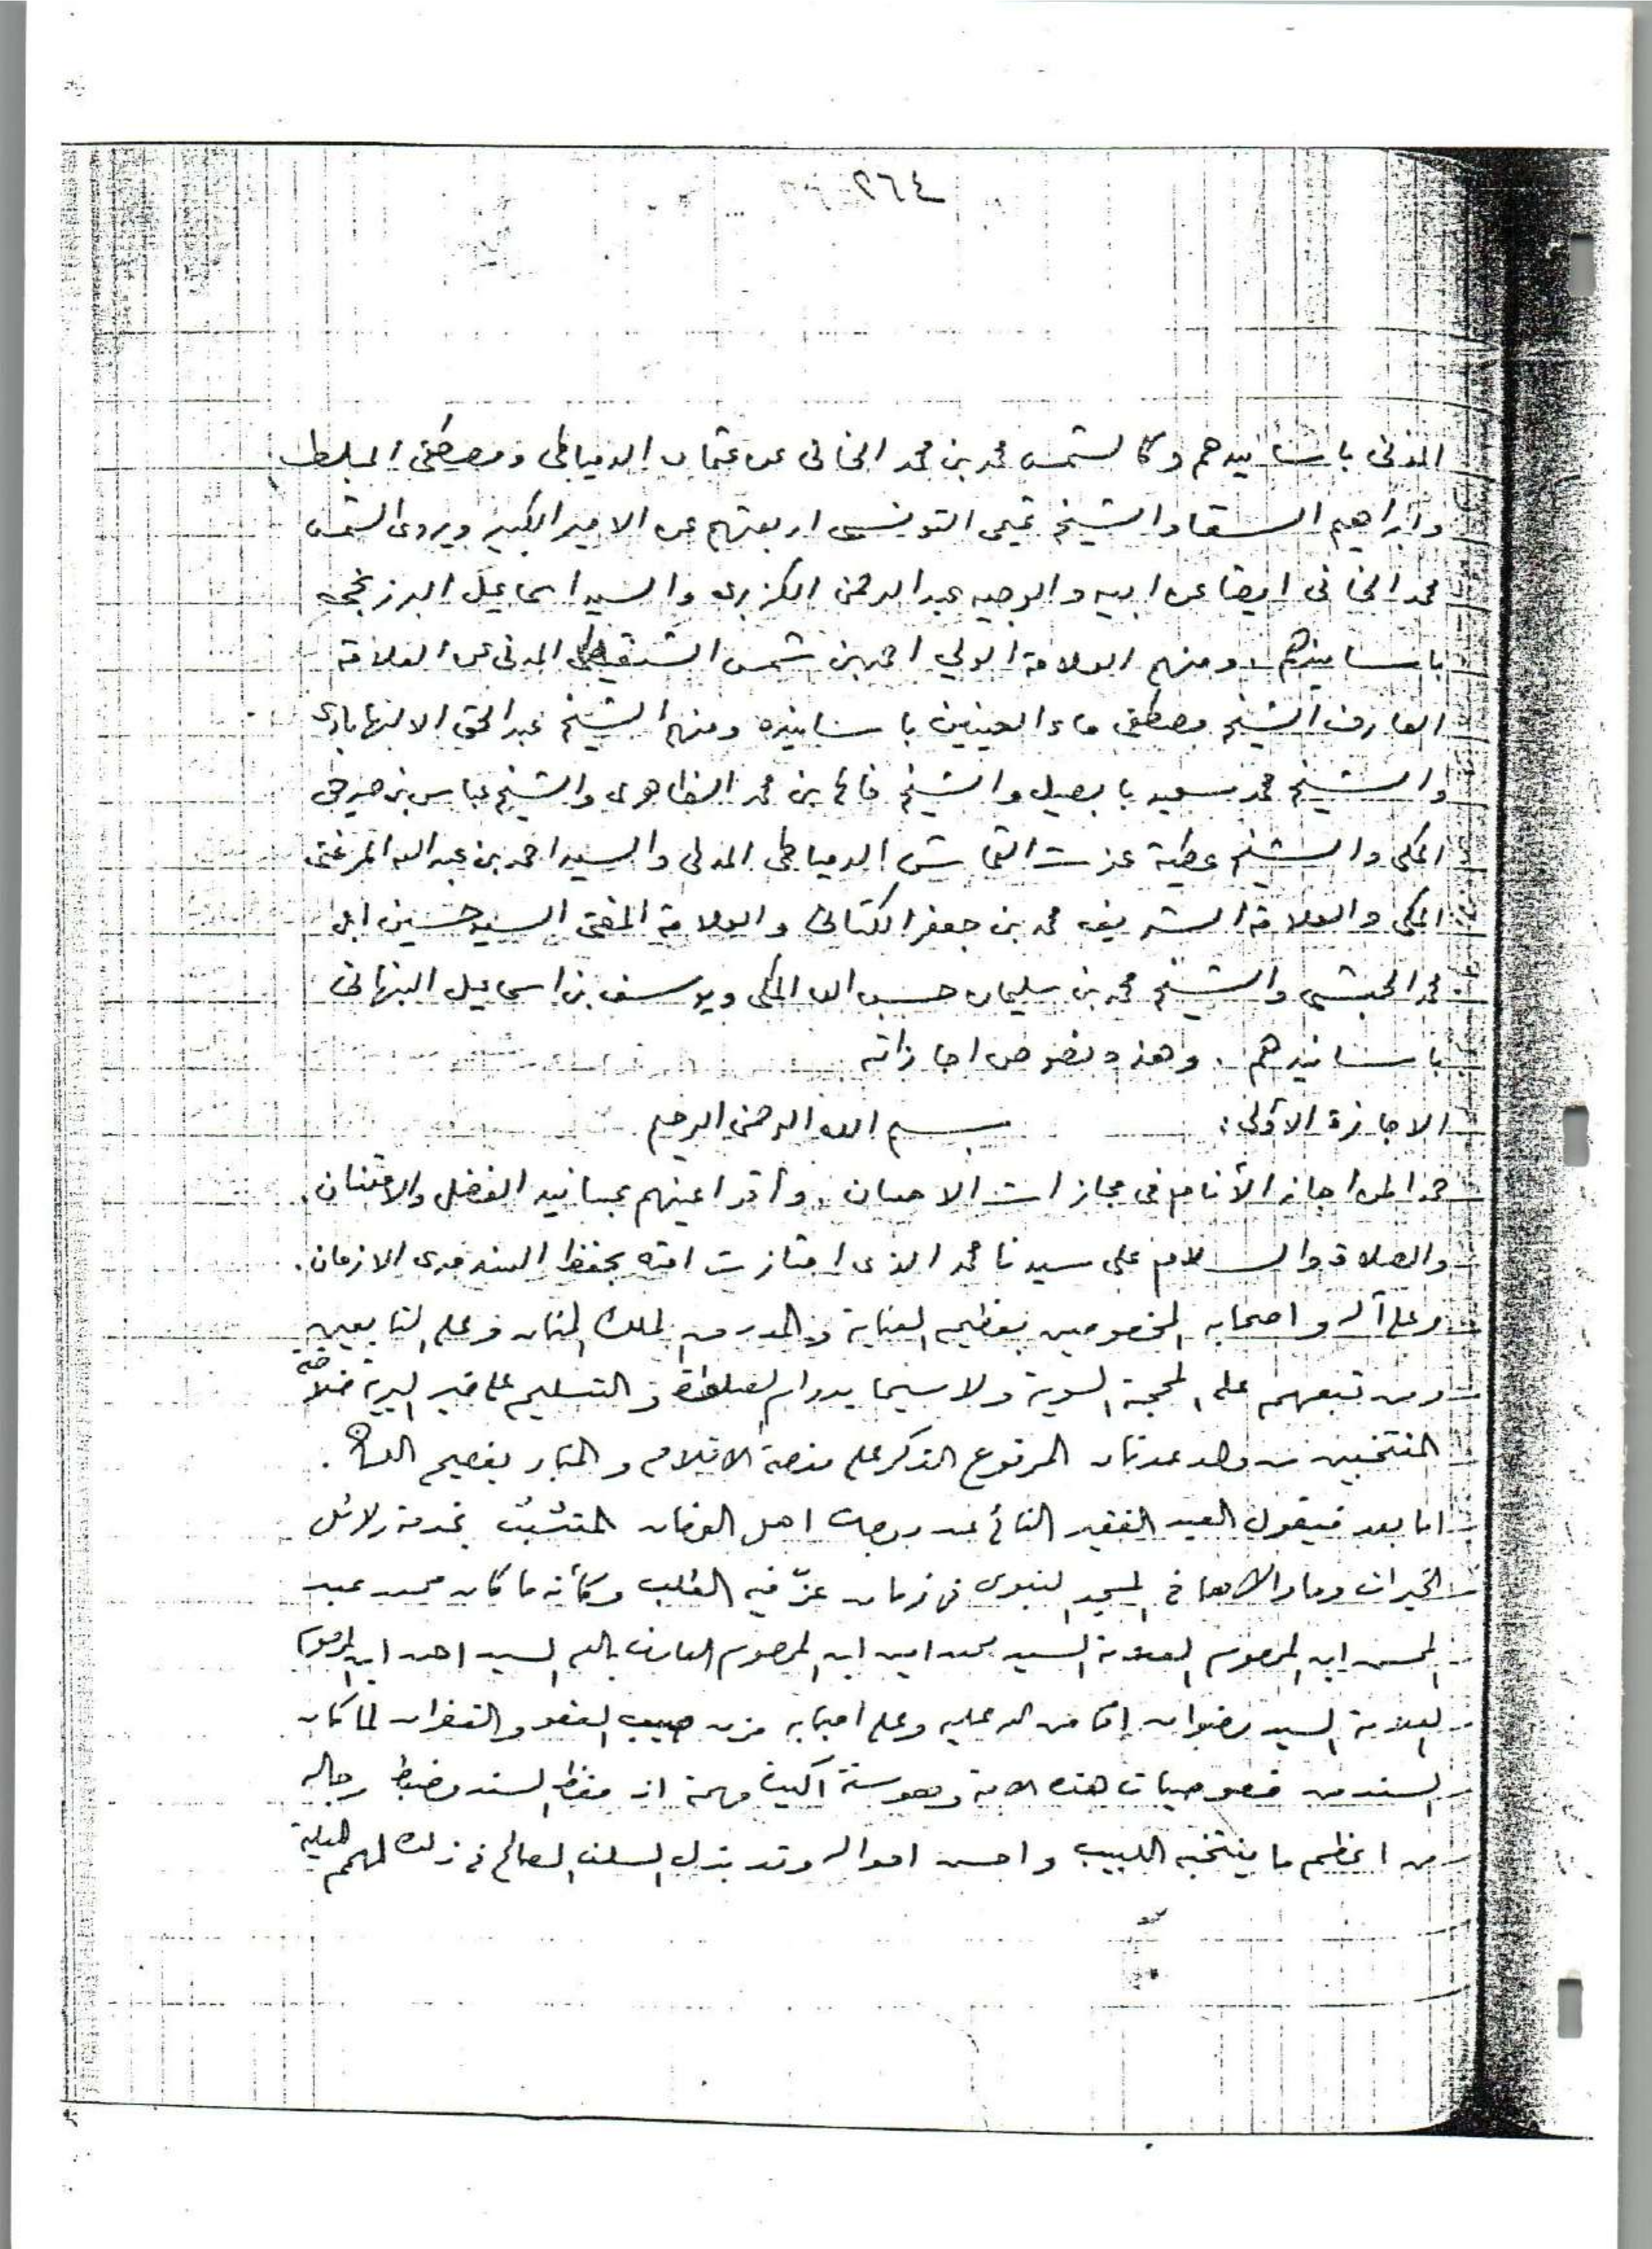 ٢٦٤
المدني باسانيدهم وكالشمس محمد بن محمد الخاني عن عثمان الدمياطي ومصطفى المبلط
وابراهيم السقا والشيخ تميمي التونسي اربعتهم عن الامير الكبير ويروى الشمس
محمد الخاني ايضا عن ابيه والوجيه عبد الرحمن الكزبرى والسيد اسماعيل البرزنجي
باسانيدهم. ومنهم العلامة الولي احمد بن شمس الشنقيطي المدني عن العلامة
العارف الشيخ مصطفى ماء العينين باسانيده ومنهم الشيخ عبد الحق الالهابادى
والشيخ محمد سعيد بابصيل والشيخ فالح بن محمد الظاهرى والشيخ عباس بن صديق
المكى والشيخ عطية عزت القماش الدمياطى المدني والسيد احمد بن عبد الله المرغنى
المكى والعلامة الشريف محمد بن جعفر الكتاني والعلامة المفتى السيد حسين ابن
محمد الحبشى والشيخ محمد بن سليمان حسب الله المكى ويوسف بن اسماعيل النبهانى
باسانيدهم. وهذه نصوص اجازاته
الاجازة الأولى: بسم الله الرحمن الرحيم
حمدا لمن اجاز الأنام في مجازات الاحسان. وأقر اعينهم بمسانيد الفضل والامتنان.
والصلاة والسلام على سيدنا محمد الذى امتازت امته بحفظ السند مدى الازمان.
وعلى آله واصحابه المخصوصين بعظيم العناية والمدد من الملك المنان وعلى التابعين
ومن تبعهم على المحجة السوية ولا سيما بدوام الصلاة والتسليم على خير البرية خلاصة
المنتخبين من ولد عدنان المرفوع الذكر على منصة الاقلام والمنابر بفصيح اللسان.
اما بعد فيقول العبد الفقير النائ عن درجات اهل العرفان المتشبث بخدمة دلائل
الخيرات وما والاها في المسجد النبوى في زمان عزّ فيه الطلب وكأنه ما كان محمد عبد
المحسن ابن المرحوم العلامة السيد محمد امين ابن المرحوم العارف بالله السيد احمد ابن المرحوم
العلامة السيد رضوان افاض الله عليه وعلى احبابه مزن صيب العفو والغفران لما كان
السند من خصوصيات هذه الامة وهو سنة اكيدة مهمة اذ حفظ السند وضبط رجاله
من اعظم ما ينتخبه اللبيب واحسن احواله وقد بذل السلف الصالح في ذلك لهمم العلية